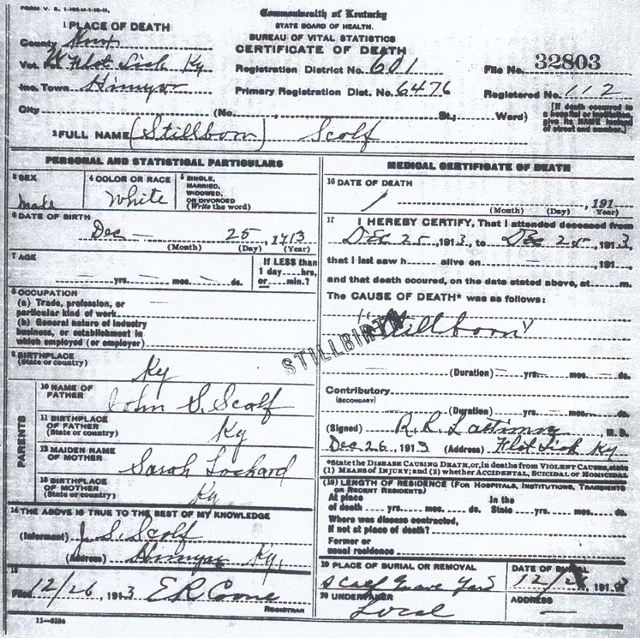 Commonwealth of Kentucky
STATE BOARD OF HEALTH.
BUREAU OF VITAL STATISTICS
CERTIFICATE OF DEATH
1 PLACE OF DEATH
County Knox
Vot. Flat Lick Ky
Inc. Town Himyar
City (No. St.; Ward)
Registration District No. 601
Primary Registration Dist. No. 6476
File No. 32803
Registered No. 112
[If death occurred in a hospital or institution, give its NAME instead of street and number.]
2 FULL NAME (Stillborn) Scalf
PERSONAL AND STATISTICAL PARTICULARS
3 SEX
Male
4 COLOR OR RACE
White
5 SINGLE, MARRIED, WIDOWED, OR DIVORCED (Write the word)
6 DATE OF BIRTH
Dec 25, 1913
(Month) (Day) (Year)
7 AGE
yrs. mos. ds.
If LESS than 1 day hrs. or min.?
8 OCCUPATION
(a) Trade, profession, or particular kind of work
(b) General nature of industry business, or establishment in which employed (or employer)
9 BIRTHPLACE
(State or country)
Ky
PARENTS
10 NAME OF FATHER
John S. Scalf
11 BIRTHPLACE OF FATHER
(State or country)
Ky
12 MAIDEN NAME OF MOTHER
Sarah Lockard
13 BIRTHPLACE OF MOTHER
Ky
14 THE ABOVE IS TRUE TO THE BEST OF MY KNOWLEDGE
(Informant) J. S. Scalf
(Address) Himyar Ky.
15
Filed 12/26, 1913
REGISTRAR
11-3184
MEDICAL CERTIFICATE OF DEATH
16 DATE OF DEATH
, 191
(Month) (Day) (Year)
17 I HEREBY CERTIFY, That I attended deceased from
Dec 25, 1913, to Dec 25, 1913
that I last saw h alive on , 191
and that death occurred, on the date stated above, at m.
The CAUSE OF DEATH* was as follows:
Stillborn
STILLBIRTH
(Duration) yrs. mos. ds.
Contributory
(SECONDARY)
(Duration) yrs. mos. ds.
(Signed) M. D.
Dec 26, 1913 (Address) Flat Lick Ky
*State the DISEASE CAUSING DEATH, or, in deaths from VIOLENT CAUSES, state
(1) MEANS OF INJURY; and (2) whether ACCIDENTAL, SUICIDAL or HOMICIDAL
(18) LENGTH OF RESIDENCE (FOR HOSPITALS, INSTITUTIONS, TRANSIENTS OR RECENT RESIDENTS)
At place of death yrs. mos. ds. In the State yrs. mos. ds.
Where was disease contracted, if not at place of death?
Former or usual residence
19 PLACE OF BURIAL OR REMOVAL
Scalf Grave Yard
DATE OF BURIAL
20 UNDERTAKER
Local
ADDRESS